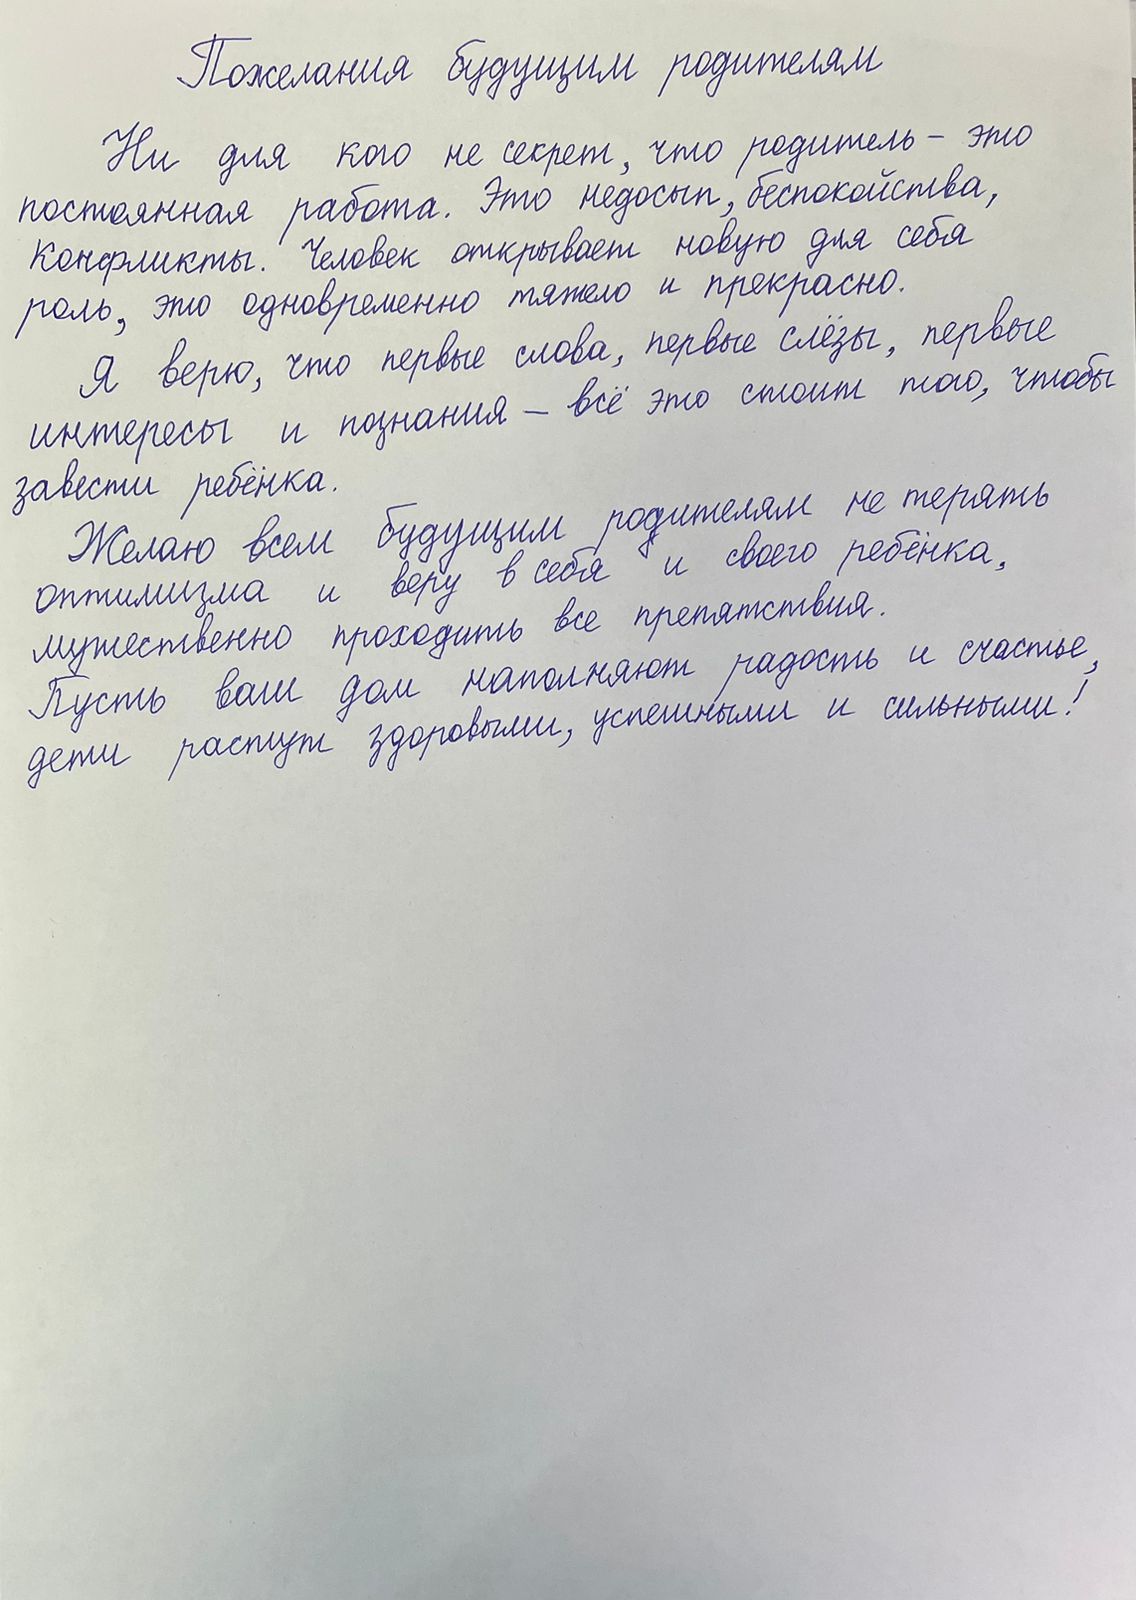 Пожелания будущим родителям
Ни для кого не секрет, что родитель – это
постоянная работа. Это недосып, беспокойства,
конфликты. Человек открывает новую для себя
роль, это одновременно тяжело и прекрасно.
Я верю, что первые слова, первые слёзы, первые
интересы и познания – всё это стоит того, чтобы
завести ребёнка.
Желаю всем будущим родителям не терять
оптимизма и веру в себя и своего ребёнка,
мужественно проходить все препятствия.
Пусть ваш дом наполняют радость и счастье,
дети растут здоровыми, успешными и сильными!